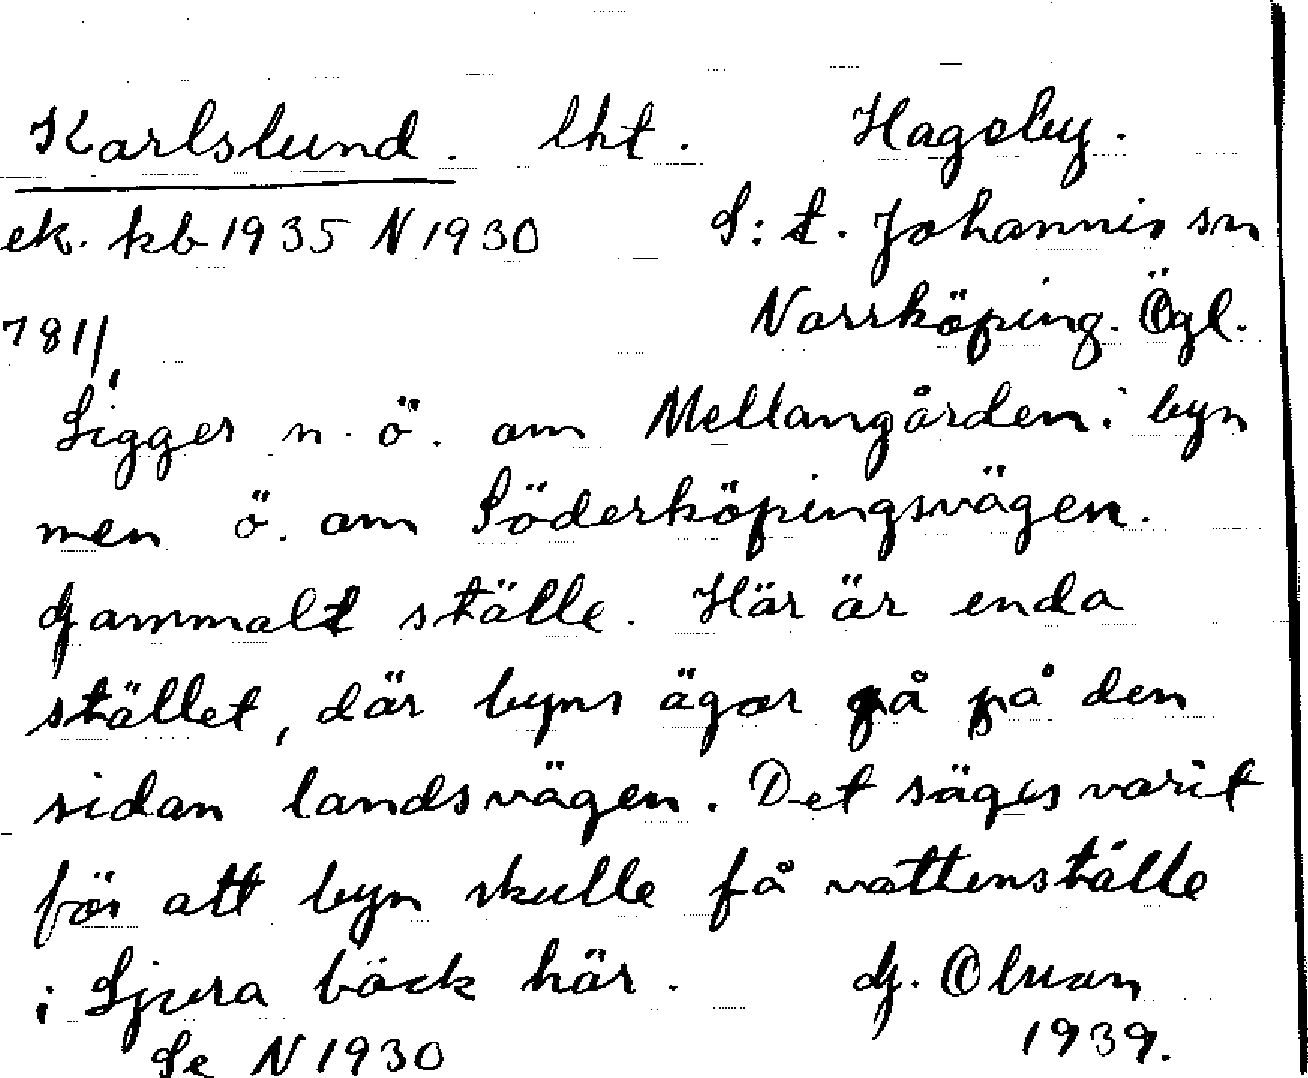 Karlslund. lht. Hageby.
ek. kb 1935 N 1930 S:t. Johannis sn
781/ Norrköping. Ögl.
Ligger n. ö. om Mellangården i byn
men ö. om Söderköpingsvägen.
Gammalt ställe. Här är enda
stället, där byns ägor gå på den
sidan landsvägen. Det säges varit
för att byn skulle få vattenställe
i Ljura bäck här. G. Olsson
Se N 1930 1939.